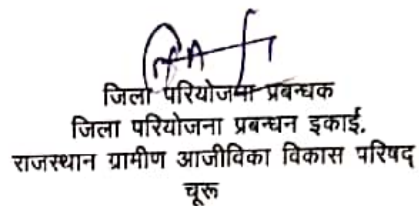 जिला परियोजना प्रबन्धक
जिला परियोजना प्रबन्धन इकाई.
राजस्थान ग्रामीण आजीविका विकास परिषद्
चूरू